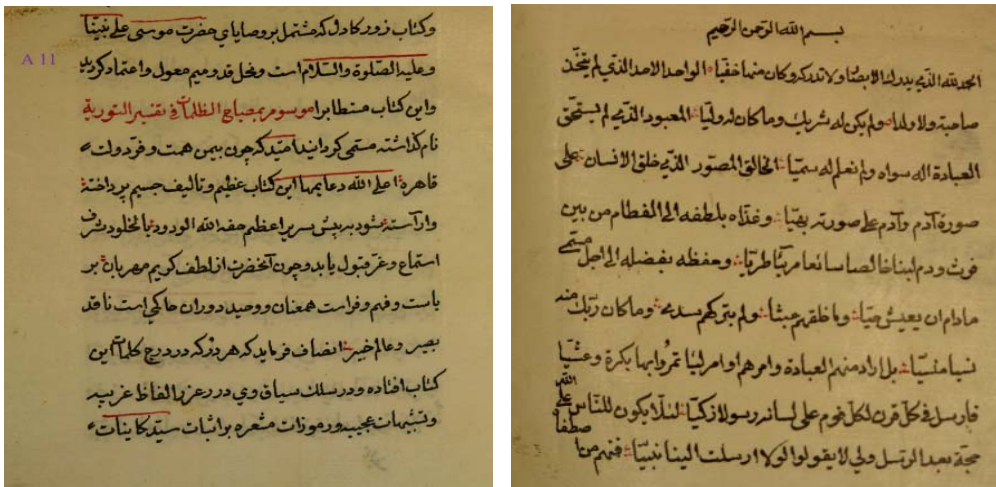 بسم الله الرحمن الرحيم
الحمد لله الذي يدرك الابصار ولا تدركه وكان منها خفيّا الواحد الاحد الذي لم يتّخذ
صاحبة ولا ولدا ولم يكن له شريك وما كان له وليّا المعبود الذي لم يستحقّ
العبادة اله سواه ولم نعلم له سميّا الخالق المصوّر الذي خلق الانسان على
صورة آدم وآدم على صورته بهيّا وغذّاه بلطفه الى الفطام من بين
فرث ودم لبنا خالصا سائغا مريّا طريّا وحفظه بفضله الى اجل مسمّى
مادام ان يعيش حيّا وما خلقهم عبثا ولم يتركهم سدى وما كان ربّك
نسيا منسيّا بل اراد منهم العبادة وامرهم اوامر ليا بكرة وعشيّا
فارسل في كلّ قرن لكلّ قوم على لسانه رسولا زكيّا لئلّا يكون للنّاس على الله
حجّة بعد الرّسل ولئلا يقولوا لولا ارسلت الينا نبيّا فمنهم من
A 11
وكتاب زور كادل كه مشتمل بر وصاياي حضرت موسى على نبيّنا
وعليه الصّلوة والسّلام است ونحل قدوميم معول واعتماد كرديد
واين كتاب مستطابرا موسوم بمصباح الظلمات في تفسير التورية
نام كذاشته مسمّى كردانيد اميّد كه چون بيمن همت وفرّ دولت
قاهرة اعلى الله دعايمها اين كتاب عظيم وتأليف جسيم پرداخته
وآراسته شود به پيش سرير اعظم حفه الله الودود بالخلود شرف
استماع وعزّ قبول يابد وچون آنحضرت از لطف كريم مهربان بر
ياست وفهم وفراست همعنان ووحيد دوران حاكمى است ناقد
بصير وعالم خبير انصاف فرمايد كه هر دُر كه در درج كلمات اين
كتاب افتاده ودر سلك سياق وى درر غرر الفاظ غريبه
وتشبيهات عجيبه ورموزات مشعره بر اثبات سيّد كاينات